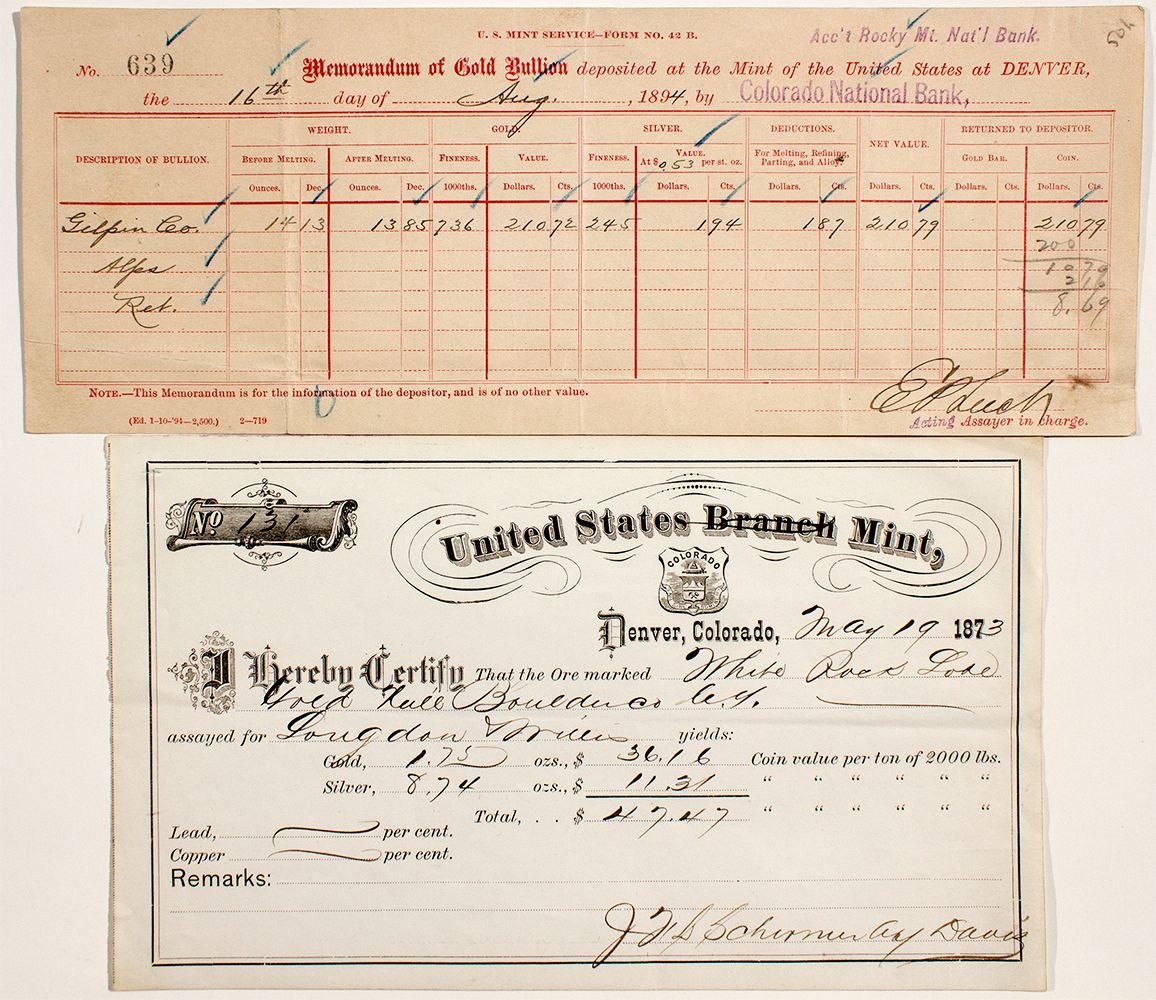 U. S. MINT SERVICE—FORM NO. 42 B.
Acc't Rocky Mt. Nat'l Bank.
No. 639 Memorandum of Gold Bullion deposited at the Mint of the United States at DENVER,
the 16th day of Aug. , 1894, by Colorado National Bank,
DESCRIPTION OF BULLION. WEIGHT. GOLD. SILVER. DEDUCTIONS. NET VALUE. RETURNED TO DEPOSITOR.
BEFORE MELTING. AFTER MELTING. FINENESS. VALUE. FINENESS. VALUE. At $0.53 per st. oz. For Melting, Refining, Parting, and Alloy. GOLD BAR. COIN.
Ounces. Dec. Ounces. Dec. 1000ths. Dollars. Cts. 1000ths. Dollars. Cts. Dollars. Cts. Dollars. Cts. Dollars. Cts. Dollars. Cts.
Gilpin Co. 14 13 13 85 736 210 72 245 1 94 1 87 210 79 210 79
200
Alps 10 79
2 16
Ret. 8.69
NOTE.—This Memorandum is for the information of the depositor, and is of no other value.
(Ed. 1-10-'94—2,500.) 2—719
Acting Assayer in charge.
No 131
United States Branch Mint,
COLORADO
Denver, Colorado, May 19 1873
I Hereby Certify That the Ore marked White Rock Lode
Gold Hill Boulder co C.T.
assayed for Longdon & Willis yields:
Gold, 1.75 ozs., $ 36.16 Coin value per ton of 2000 lbs.
Silver, 8.74 ozs., $ 11.31 " " " " "
Total, . . $ 47.47 " " " " "
Lead, per cent.
Copper per cent.
Remarks:
J F L Schirmer by Davis